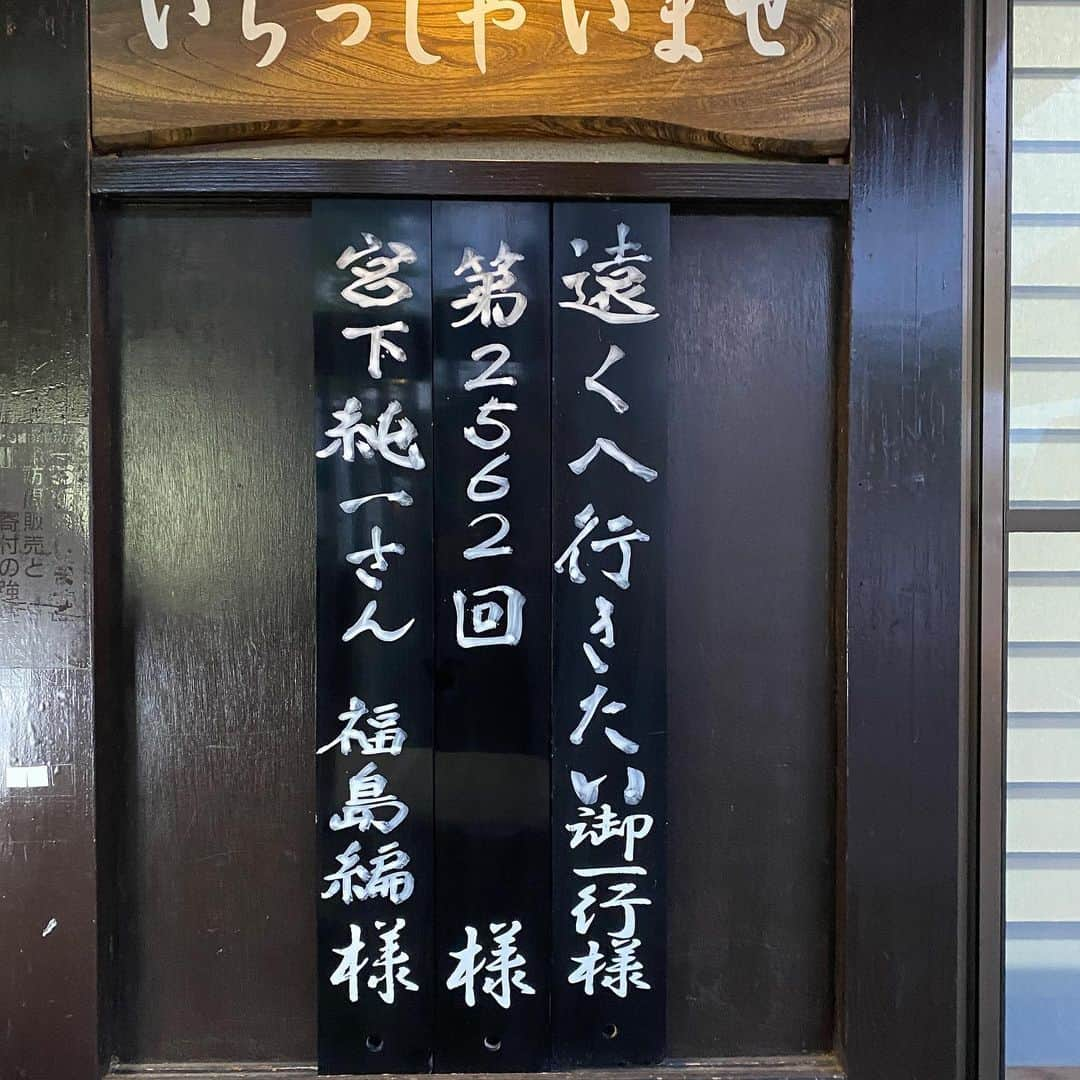 いらっしゃいませ
遠くへ行きたい御一行様
第2562回 様
宮下純一さん 福島編様
訪問販売と
寄付の強